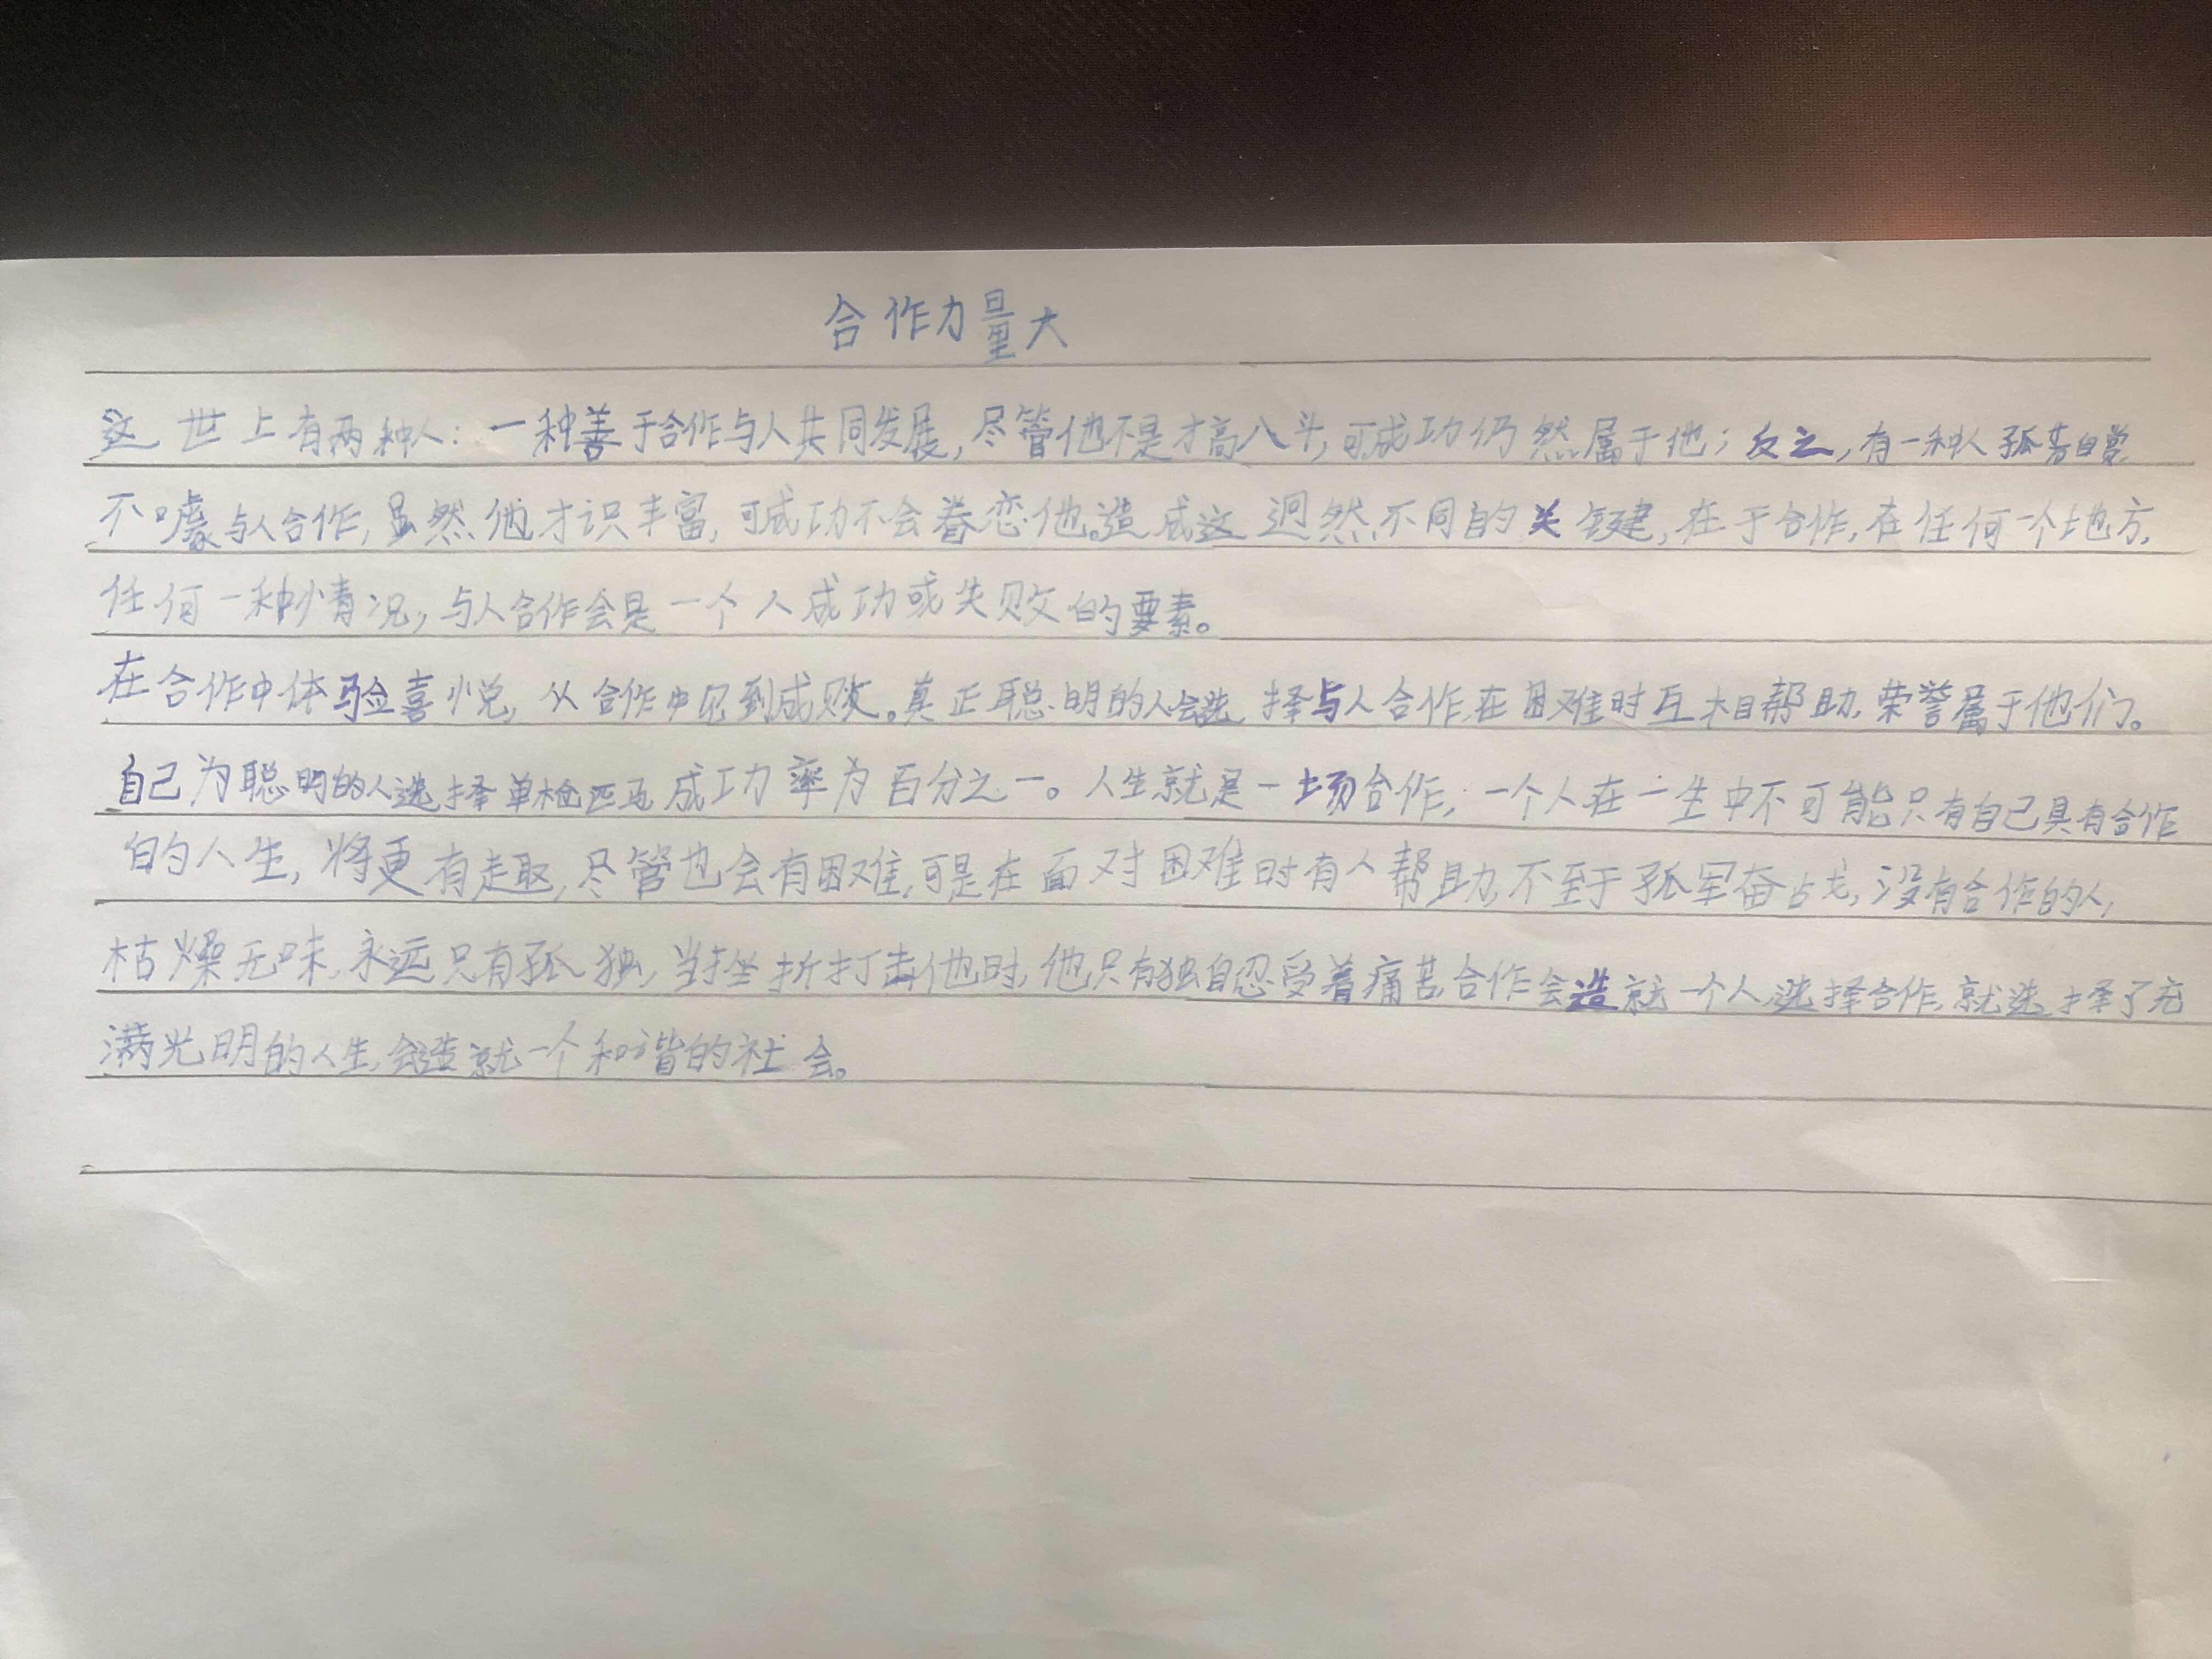 合作力量大
这世上有两种人：一种善于合作与人共同发展，尽管他不是才高八斗，可成功仍然属于他；反之，有一种人孤芳自赏
不噱与人合作，虽然他才识丰富，可成功不会眷恋他。造成这迥然不同的关键，在于合作，在任何一个地方，
任何一种情况，与人合作会是一个人成功或失败的要素。
在合作中体验喜悦，从合作中见到成败。真正聪明的人会选择与人合作，在困难时互相帮助，荣誉属于他们。
自己为聪明的人选择单枪匹马成功率为百分之一。人生就是一场合作，一个人在一生中不可能只有自己具有合作
的人生，将更有趣，尽管也会有困难，可是在面对困难时有人帮助，不至于孤军奋战，没有合作的人，
枯燥无味，永远只有孤独，当挫折打击他时，他只有独自忍受着痛苦，合作会造就一个人，选择合作，就选择了充
满光明的人生，会造就一个和谐的社会。